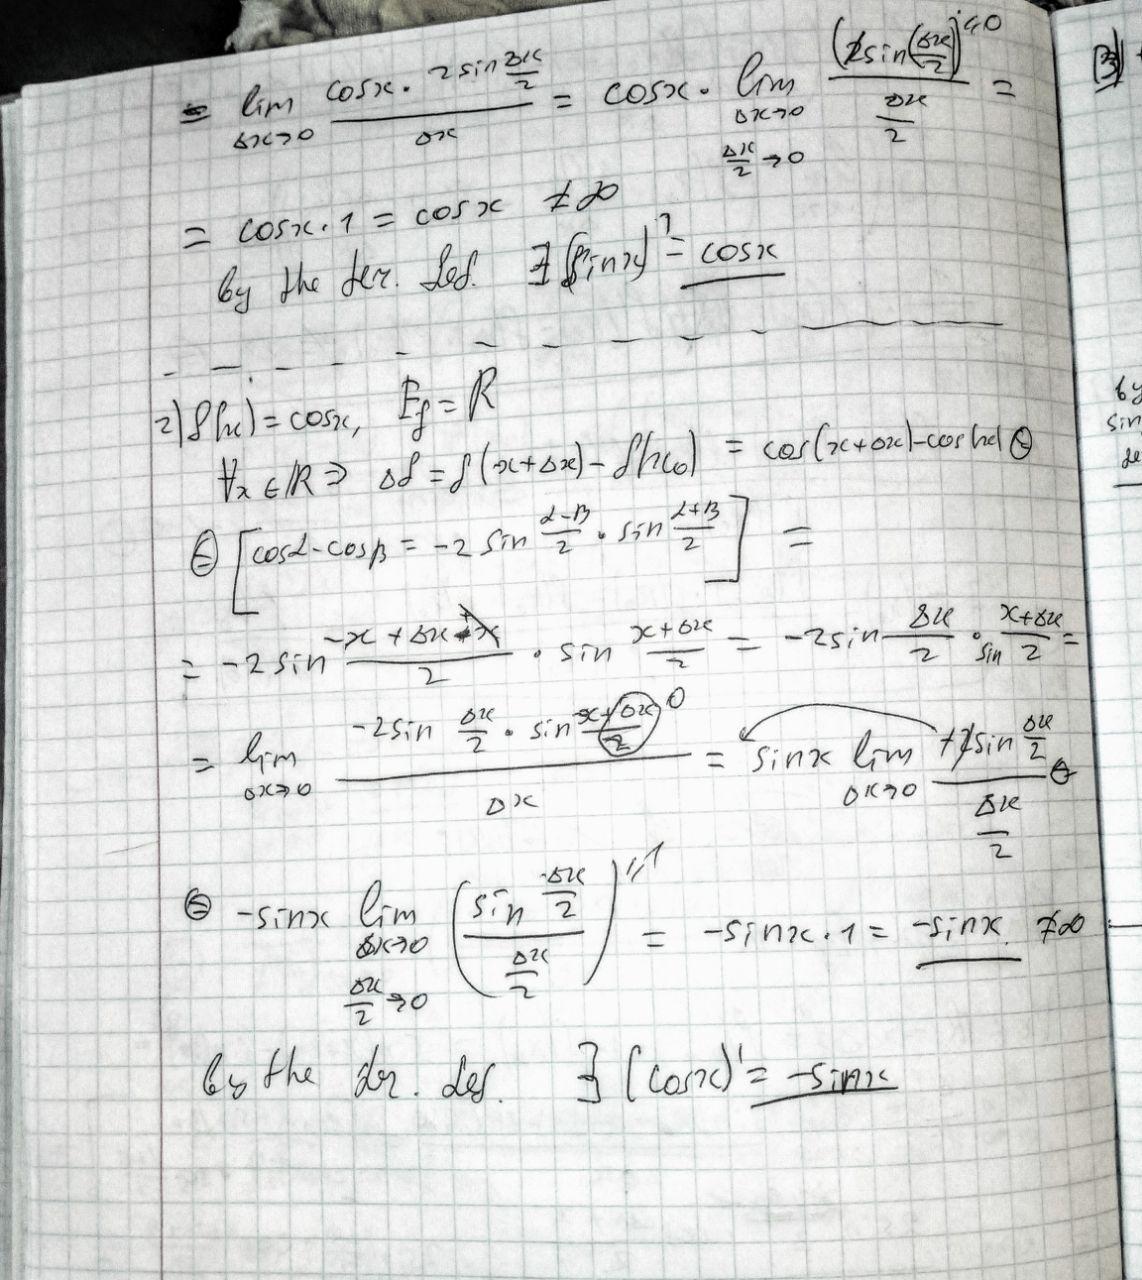 = lim Δx→0 (cosx · 2sin Δx/2)/Δx = cosx · lim Δx→0, Δx/2→0 (2sin(Δx/2))/(Δx/2) =
= cosx · 1 = cosx ≠ ∞
by the der. def. ∃ (sinx)' = cosx
2) f(x) = cosx, E_f = R
∀x ∈ R ⇒ Δf = f(x+Δx) - f(x₀) = cos(x+Δx) - cos(x) ⊜
⊜ [cosα - cosβ = -2 sin (α-β)/2 · sin (α+β)/2] =
= -2 sin (-x + Δx + x)/2 · sin (x+Δx)/2 = -2sin Δx/2 · sin (x+Δx)/2 =
= lim Δx→0 (-2sin Δx/2 · sin (x+Δx)/2)/Δx = sinx lim Δx→0 (+2sin Δx/2)/(Δx/2) ⊜
⊜ -sinx lim Δx→0, Δx/2→0 (sin Δx/2 / (Δx/2)) = -sinx · 1 = -sinx ≠ ∞
by the der. def. ∃ (cosx)' = -sinx
3)
by
sin